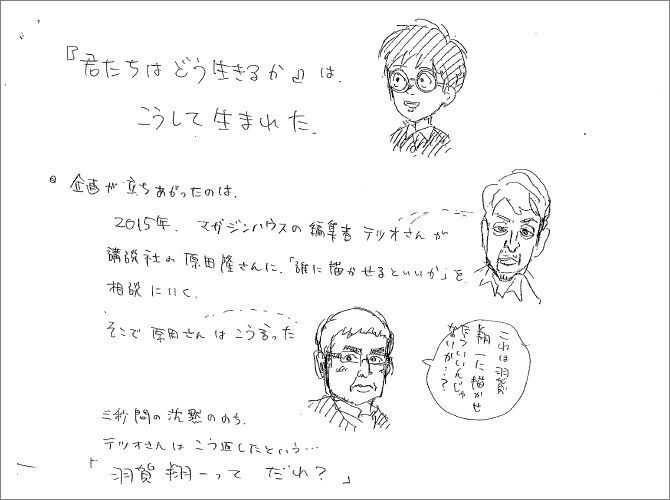 『君たちはどう生きるか』は、
こうして生まれた。
企画が立ちあがったのは、
2015年、マガジンハウスの編集者テツオさんが
講談社の原田隆さんに、「誰に描かせるといいか」を
相談にいく。
そこで原田さんはこう言った
これは羽賀
翔一に描かせ
たらいいんじゃ
ないか…?
三秒間の沈黙ののち、
テツオさんはこう返したという…
「羽賀翔一って だれ?」